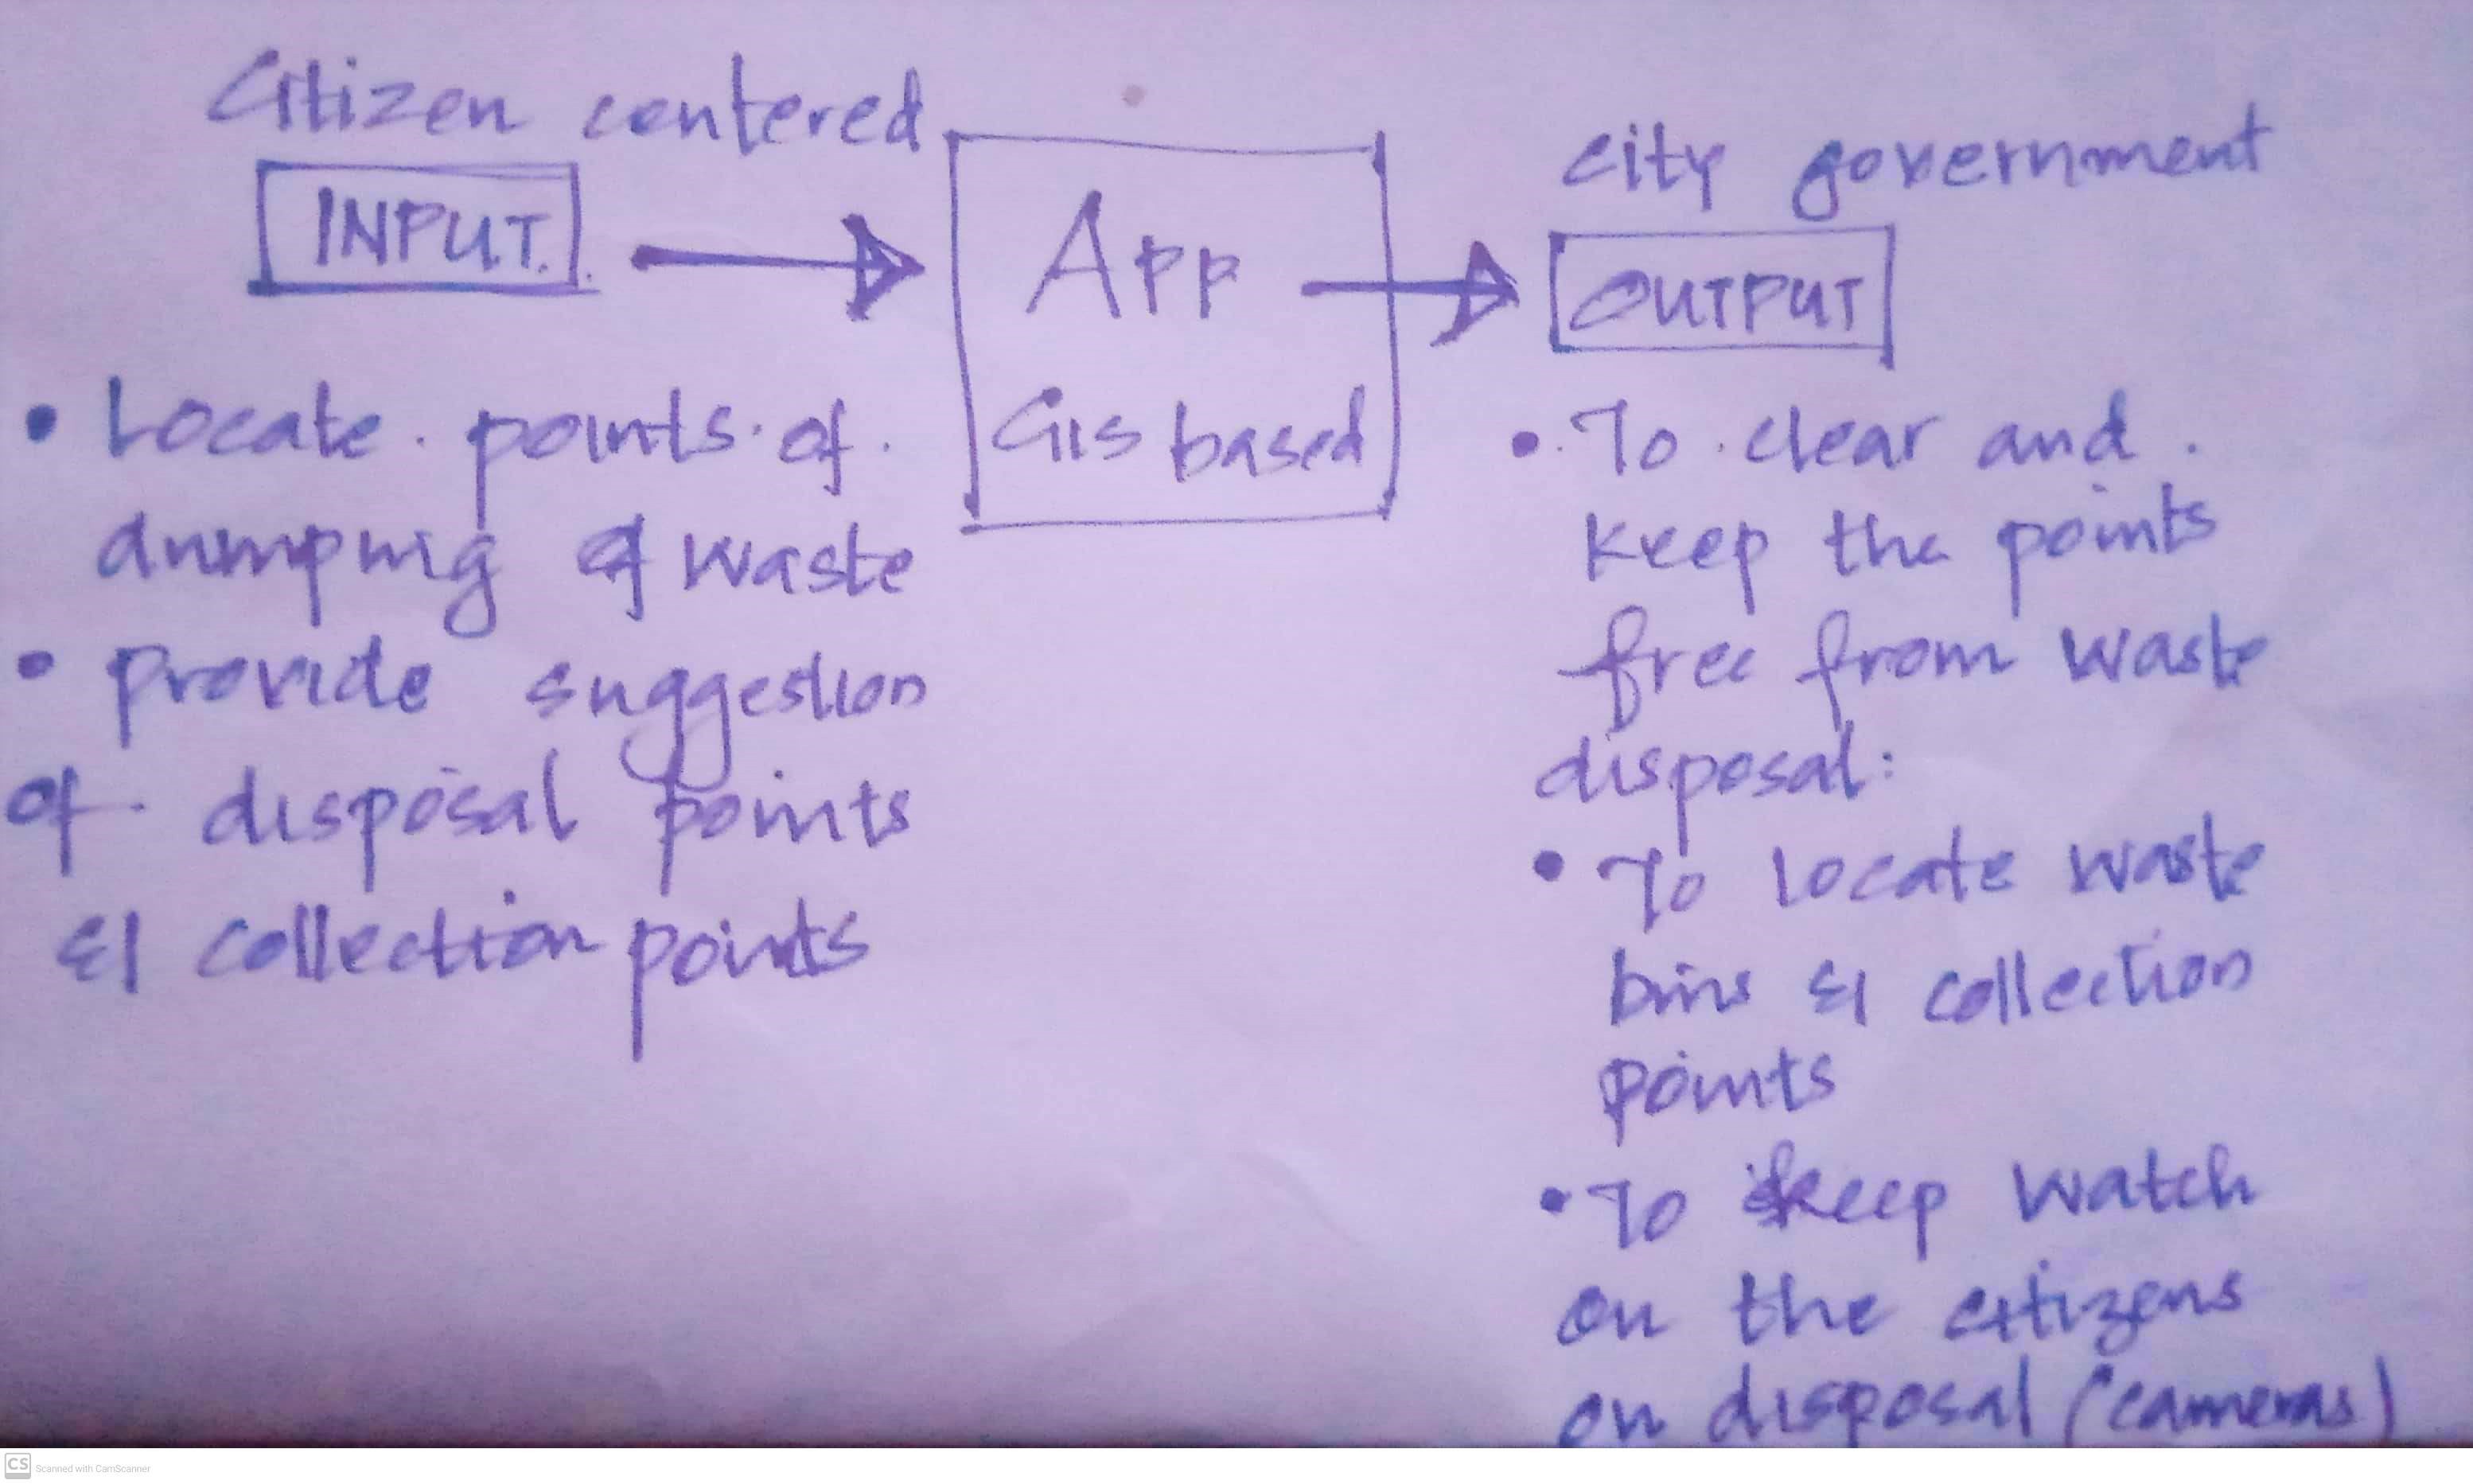 Citizen centered
INPUT.
• Locate points of
dumping of waste
• provide suggestion
of disposal points
& collection points
App
GIS based
city government
OUTPUT
• To clear and
keep the points
free from waste
disposal:
• To locate waste
bins & collection
points
• To keep watch
on the citizens
on disposal (cameras)
CS Scanned with CamScanner